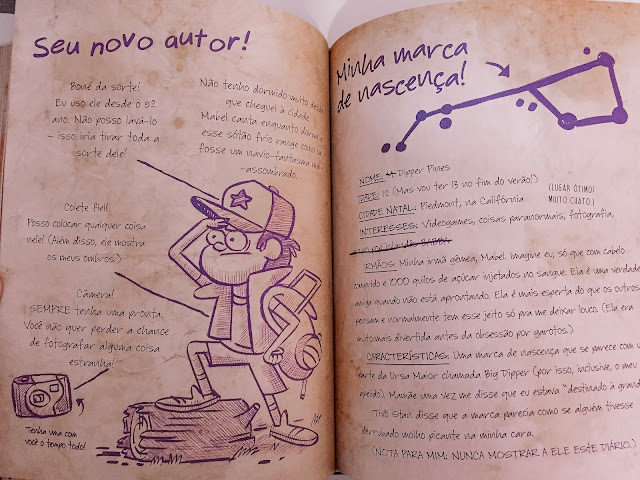 Seu novo autor!
Boné da sorte!
Eu uso ele desde o 5º
ano. Não posso lavá-lo
- isso iria tirar toda a
sorte dele!
Não tenho dormido muito desde
que cheguei à cidade.
Mabel canta enquanto dorme, e
esse sótão frio range como se
fosse um navio-fantasma mal-
-assombrado.
Colete fiel!
Posso colocar qualquer coisa
nele! (Além disso, ele mostra
os meus ombros.)
Câmera!
SEMPRE tenha uma pronta.
Você não quer perder a chance
de fotografar alguma coisa
estranha!
Tenha uma com
você o tempo todo!
Minha marca
de nascença!
NOME: Dipper Pines
IDADE: 12 (Mas vou ter 13 no fim do verão!)
CIDADE NATAL: Piedmont, na Califórnia
(LUGAR ÓTIMO!
MUITO CHATO!)
INTERESSES: Videogames, coisas paranormais, fotografia,
IRMÃOS: Minha irmã gêmea, Mabel. Imagine eu, só que com cabelo
comprido e 1000 quilos de açúcar injetados no sangue. Ela é uma verdadeira
amiga quando não está aprontando. Ela é mais esperta do que os outros
pensam e normalmente tem esse jeito só pra me deixar louco. (Ela era
muito mais divertida antes da obsessão por garotos.)
CARACTERÍSTICAS: Uma marca de nascença que se parece com u
parte da Ursa Maior chamada Big Dipper (por isso, inclusive, o meu
apelido). Mamãe uma vez me disse que eu estava "destinado à grande
Tivô Stan disse que a marca parecia como se alguém tivesse
derrubado molho picante na minha cara.
(NOTA PARA MIM: NUNCA MOSTRAR A ELE ESTE DIÁRIO.)